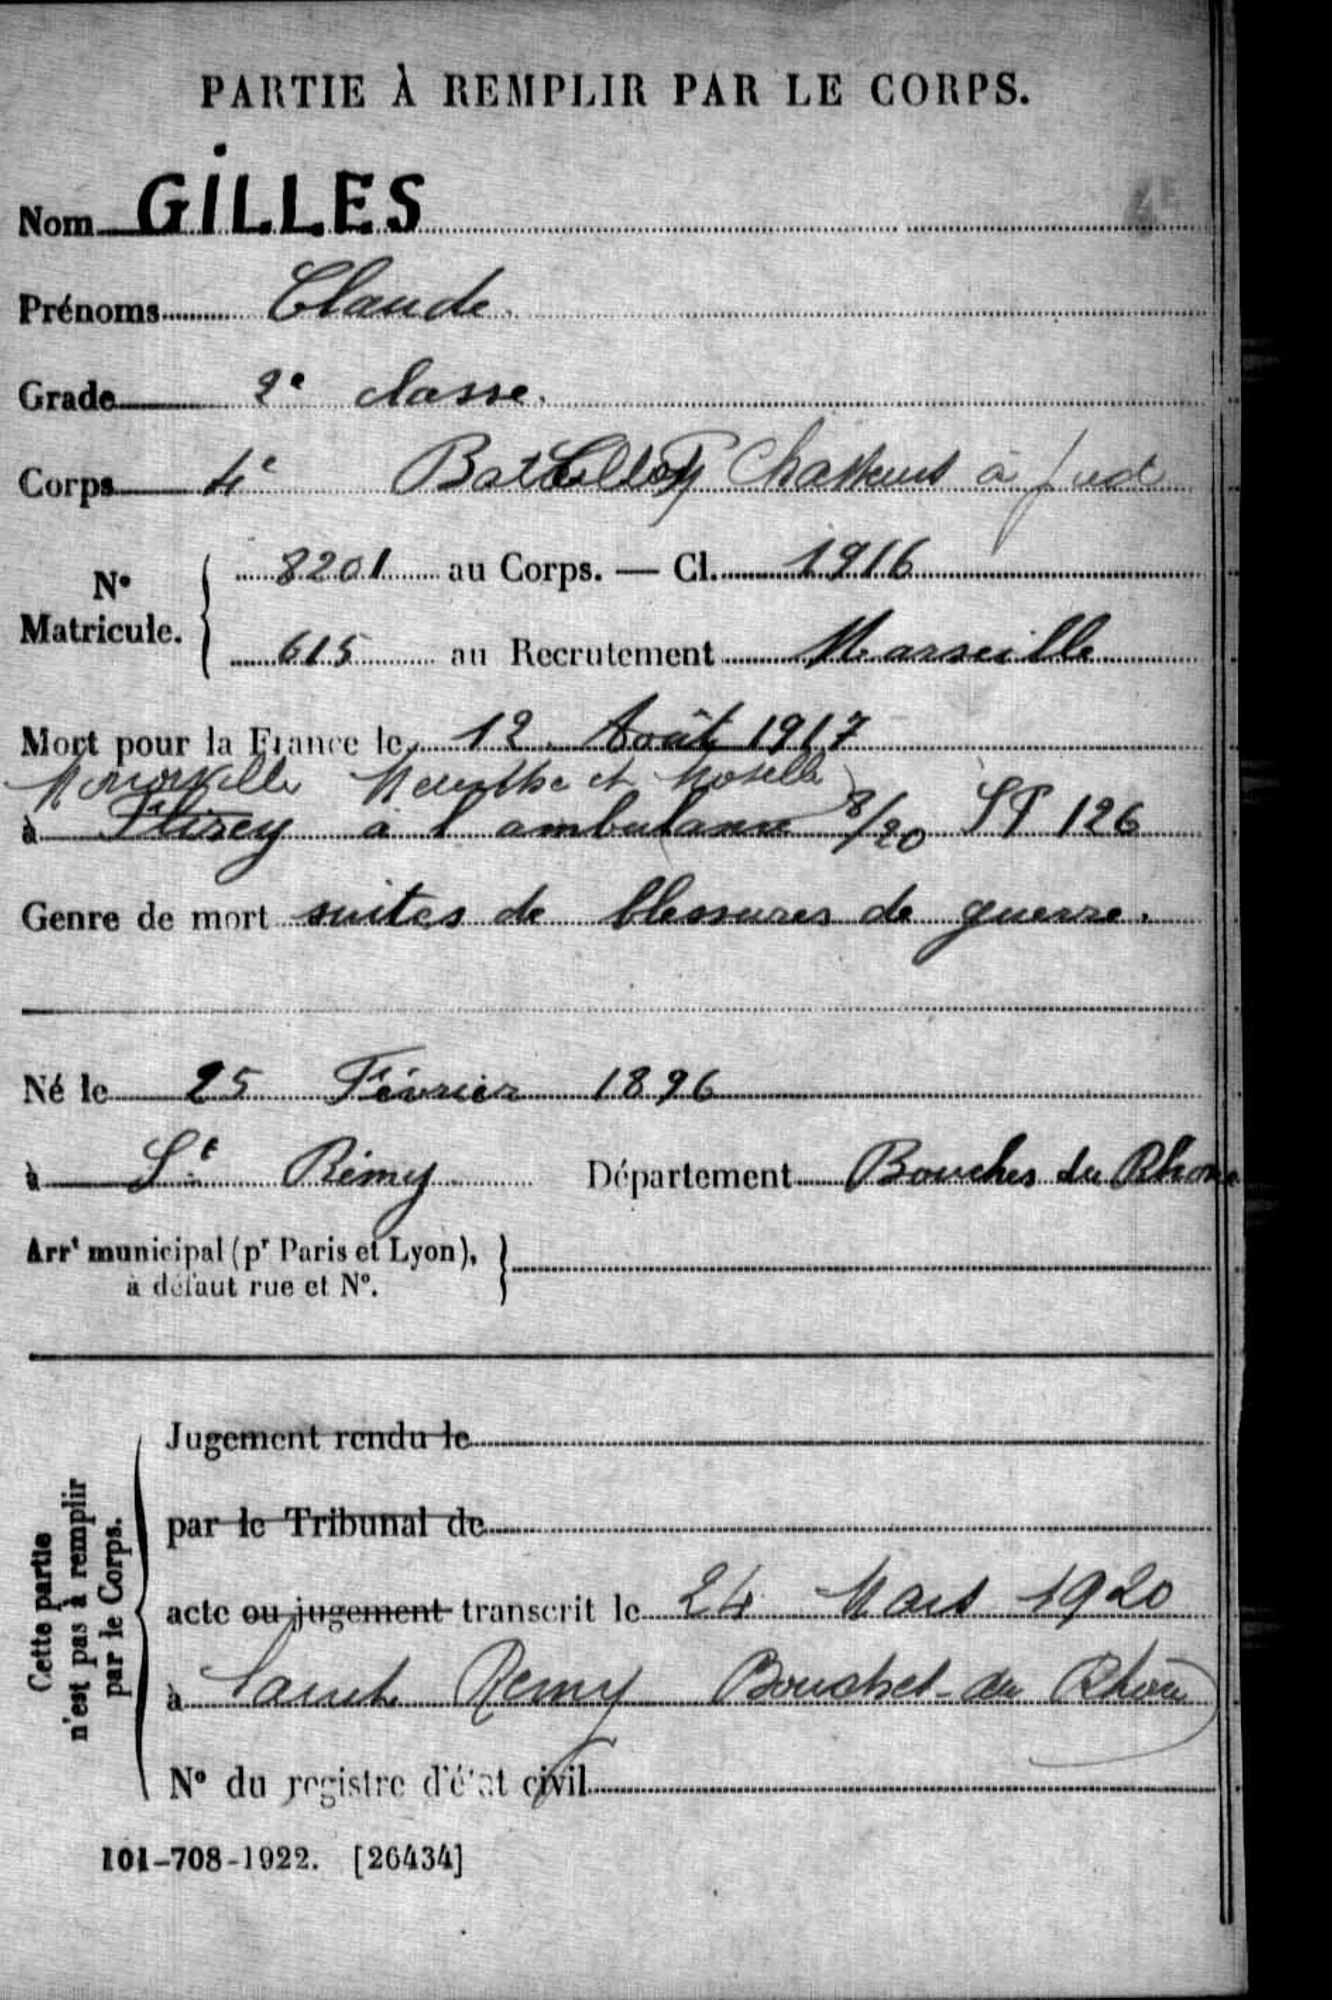 PARTIE À REMPLIR PAR LE CORPS.
Nom GILLES
Prénoms Claude.
Grade 2e classe.
Corps 4e Bataillon Chasseurs à pied
N° Matricule. 8201 au Corps. — Cl. 1916
615 au Recrutement Marseille
Mort pour la France le 12 Août 1917
Meurthe et Moselle
à Flirey à l'ambulance 8/20 SP 126
Genre de mort suites de blessures de guerre.
Né le 25 Février 1896
à St Rémy Département Bouches du Rhone
Arrt municipal (pr Paris et Lyon),
à défaut rue et N°.
Cette partie
n'est pas à remplir
par le Corps.
Jugement rendu le
par le Tribunal de
acte ou jugement transcrit le 24 Mars 1920
à Saint Remy Bouches-du Rhône
N° du registre d'état civil
101-708-1922. [26434]